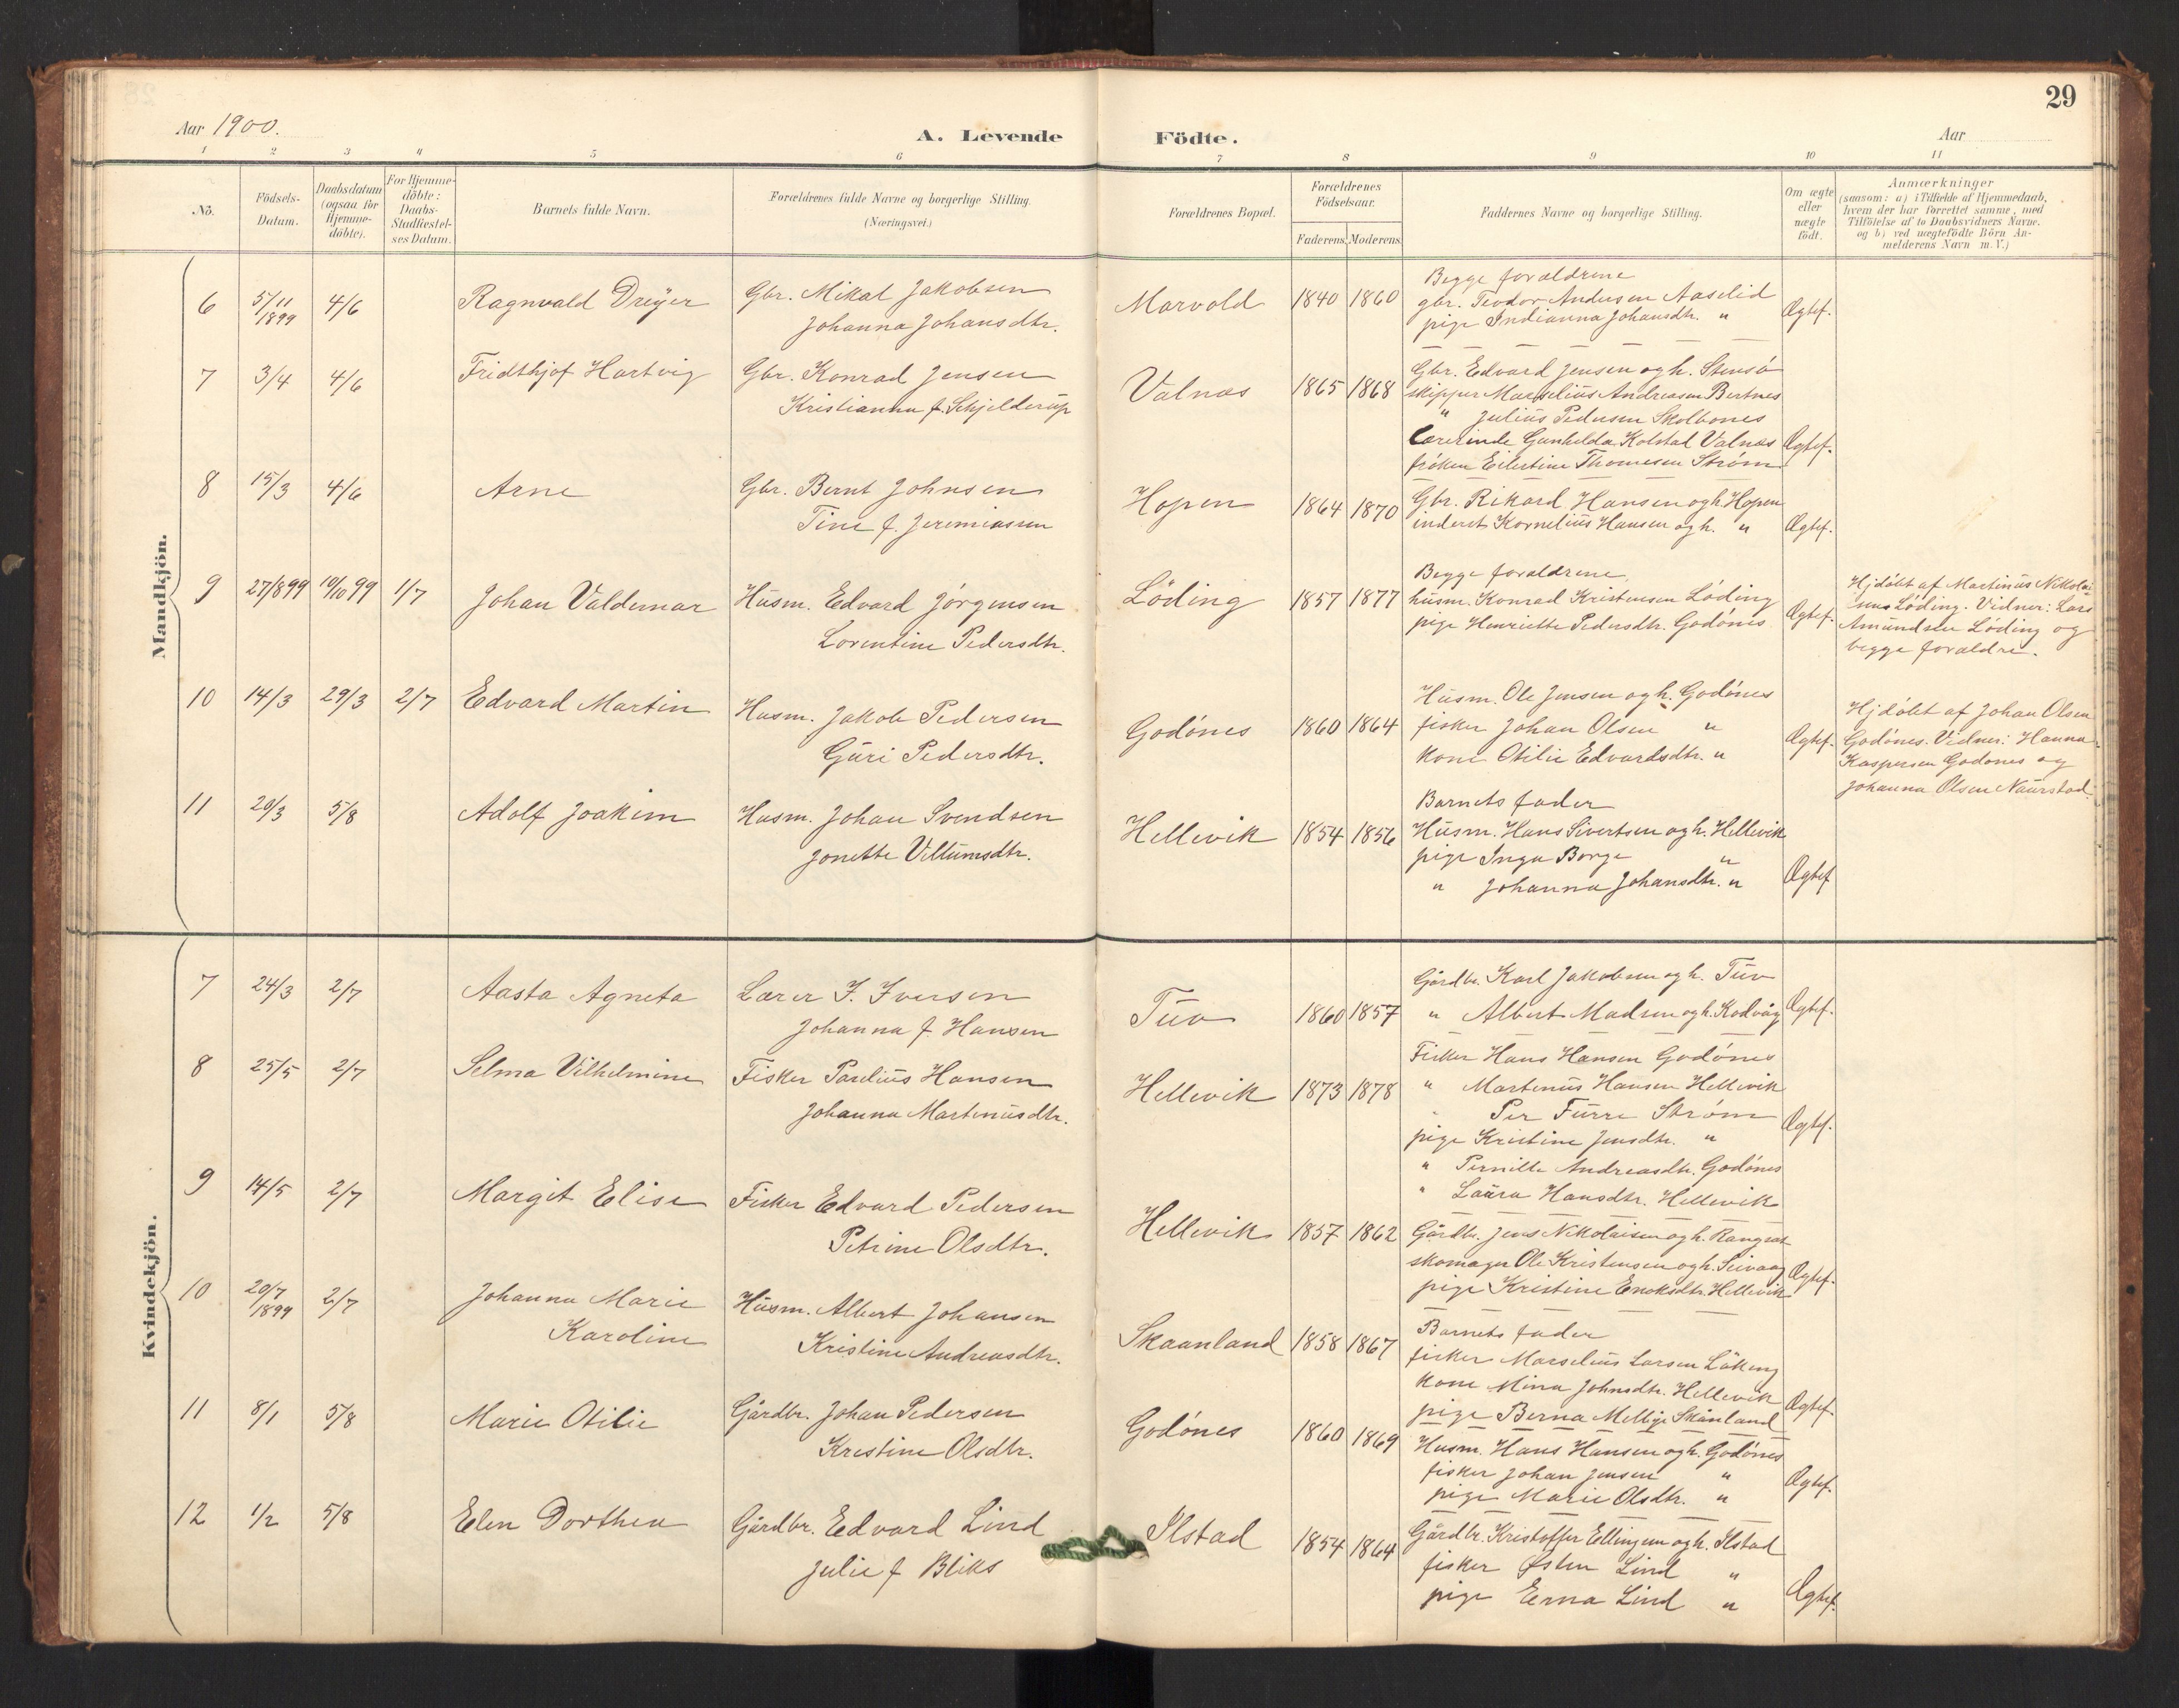 29
Aar 1900.
A. Levende Födte.
Aar
1 2 3 4 5 6 7 8 9 10 11
Nö.
Födsels-
Datum.
Daabsdatum
(ogsaa for
Hjemme-
döbte).
For Hjemme-
döbte:
Daabs-
Stadfæstel-
ses Datum.
Barnets fulde Navn.
Forældrenes fulde Navne og borgerlige Stilling.
(Næringsvei.)
Forældrenes Bopæl.
Forældrenes
Födselsaar.
Faderens. Moderens.
Faddernes Navne og borgerlige Stilling.
Om ægte
eller
uægte
födt.
Anmærkninger
(saasom: a) i Tilfælde af Hjemmedaab,
hvem der har forrettet samme, med
Tilföielse af to Daabsvidners Navne.
og b) ved uægtefödte Börn An-
melderens Navn m. V.)
Mandkjön.
6 5/11 1899 4/6 Ragnvald Dreÿer
Gbr. Mikal Jakobsen
Johanna Johansdtr.
Marvold 1840 1860
Begge forældrene
gbr. Teodor Andersen Aaselid
pige Indianna Johansdtr. "
Ægtef.
7 3/4 4/6 Fridthjof Hartvig
Gbr. Konrad Jensen
Kristianna f. Schjelderup
Valnæs 1865 1868
Gbr. Edvard Jensen og h. Stensö
skipper Marselius Andreasen Bertnes
" Julius Pedersen Skolbones
Lærerinde Gunhelda Kolstal Valnæs
fröken Eilertine Thomesen Ström
Ægtef.
8 15/3 4/6 Arne
Gbr. Bernt Johnsen
Tine f. Jeremiassen
Hopen 1864 1870
Gbr. Rikard Hansen og h. Hopen
inderst Kornelius Hansen og h. "
Ægtef.
9 27/8 99 10/10 99 1/7 Johan Valdemar
Husm. Edvard Jörgensen
Lorentine Pedersdtr.
Löding 1857 1877
Begge forældrene
husm. Konrad Kristensen Löding
pige Henriette Pedersdtr. Godönes
Ægtef.
Hjdöbt af Martinus Nikolai
Löding. Vidner: Lars
Amundsen Löding og
begge forældre.
10 14/3 29/3 2/7 Edvard Martin
Husm. Jakob Pedersen
Guri Pedersdtr.
Godönes 1860 1864
Husm. Ole Jensen og h. Godönes
fisker Johan Olsen "
kone Otilie Edvardsdtr. "
Ægtef.
Hjdöbt af Johan Olsen
Godönes. Vidner: Hanna
Kaspersen Godönes og
Johanna Olsen Naurstad.
11 20/3 5/8 Adolf Joakim
Husm. Johan Svendsen
Jonette Villumsdtr.
Hellevik 1854 1856
Barnets fader
Husm. Hans Sivertsen og h. Hellevik
pige Inga Borge "
" Johanna Johansdtr. "
Ægtef.
Kvindekjön.
7 24/3 2/7 Aasta Agneta
Lærer I. Iversen
Johanna f. Hansen
Tuv 1860 1857
Gårdbr. Karl Jakobsen og h. Tuv
" Albert Madsen og h. Kodvåg
Ægtef.
8 25/5 2/7 Selma Vilhelmine
Fisker Parelius Hansen
Johanna Martinusdtr.
Hellevik 1873 1878
Fisker Hans Hansen Godönes
" Martinus Hansen Hellevik
" Per Furre Ström
pige Kristine Jensdtr. "
" Pernille Andreasdtr. Godönes
" Laura Hansdtr. Hellevik
Ægtef.
9 14/5 2/7 Margit Elise
Fisker Edvard Pedersen
Petrine Olsdtr.
Hellevik 1857 1862
Gårdbr. Jens Nikolaisen og h.
skomager Ole Kristensen og h. Seivaag
pige Kristine Enoksdtr. Hellevik
Ægtef.
10 20/7 1899 2/7 Johanna Marie
Karoline
Husm. Albert Johansen
Kristine Andreasdtr.
Skaanland 1858 1867
Barnets fader
fisker Marselius Larsen Löking
kone Mina Johnsdtr. Hellevik
pige Berna Skånland
Ægtef.
11 8/1 5/8 Marie Otilie
Gårdbr. Johan Pedersen
Kristine Olsdtr.
Godönes 1860 1869
Husm. Hans Hansen og h. Godönes
fisker Johan Jensen "
pige Marie Olsdtr. "
Ægtef.
12 1/2 5/8 Elen Dorthea
Gårdbr. Edvard Lind
Julie f Bliks
Ilstad 1854 1864
Gårdbr. Kristoffer Ellingsen og h. Ilstad
fisker Östen Lind "
pige Erna Lind "
Ægtef.